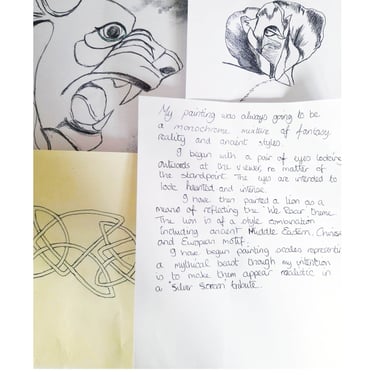 My painting was always going to be
a monochrome mixture of fantasy
reality and ancient styles.
I begin with a pair of eyes looking
outwards at the viewer, no matter of
the standpoint. The eyes are intended to
look haunted and intense.
I have then painted a lion as a
means of reflecting the 'We Roar' theme.
The lion is of a style combination
including ancient Middle Eastern, Chinese
and European motif.
I have begun painting scales representing
a mythical beast though my intention
is to make them appear realistic in
a "Silver Screen" tribute.